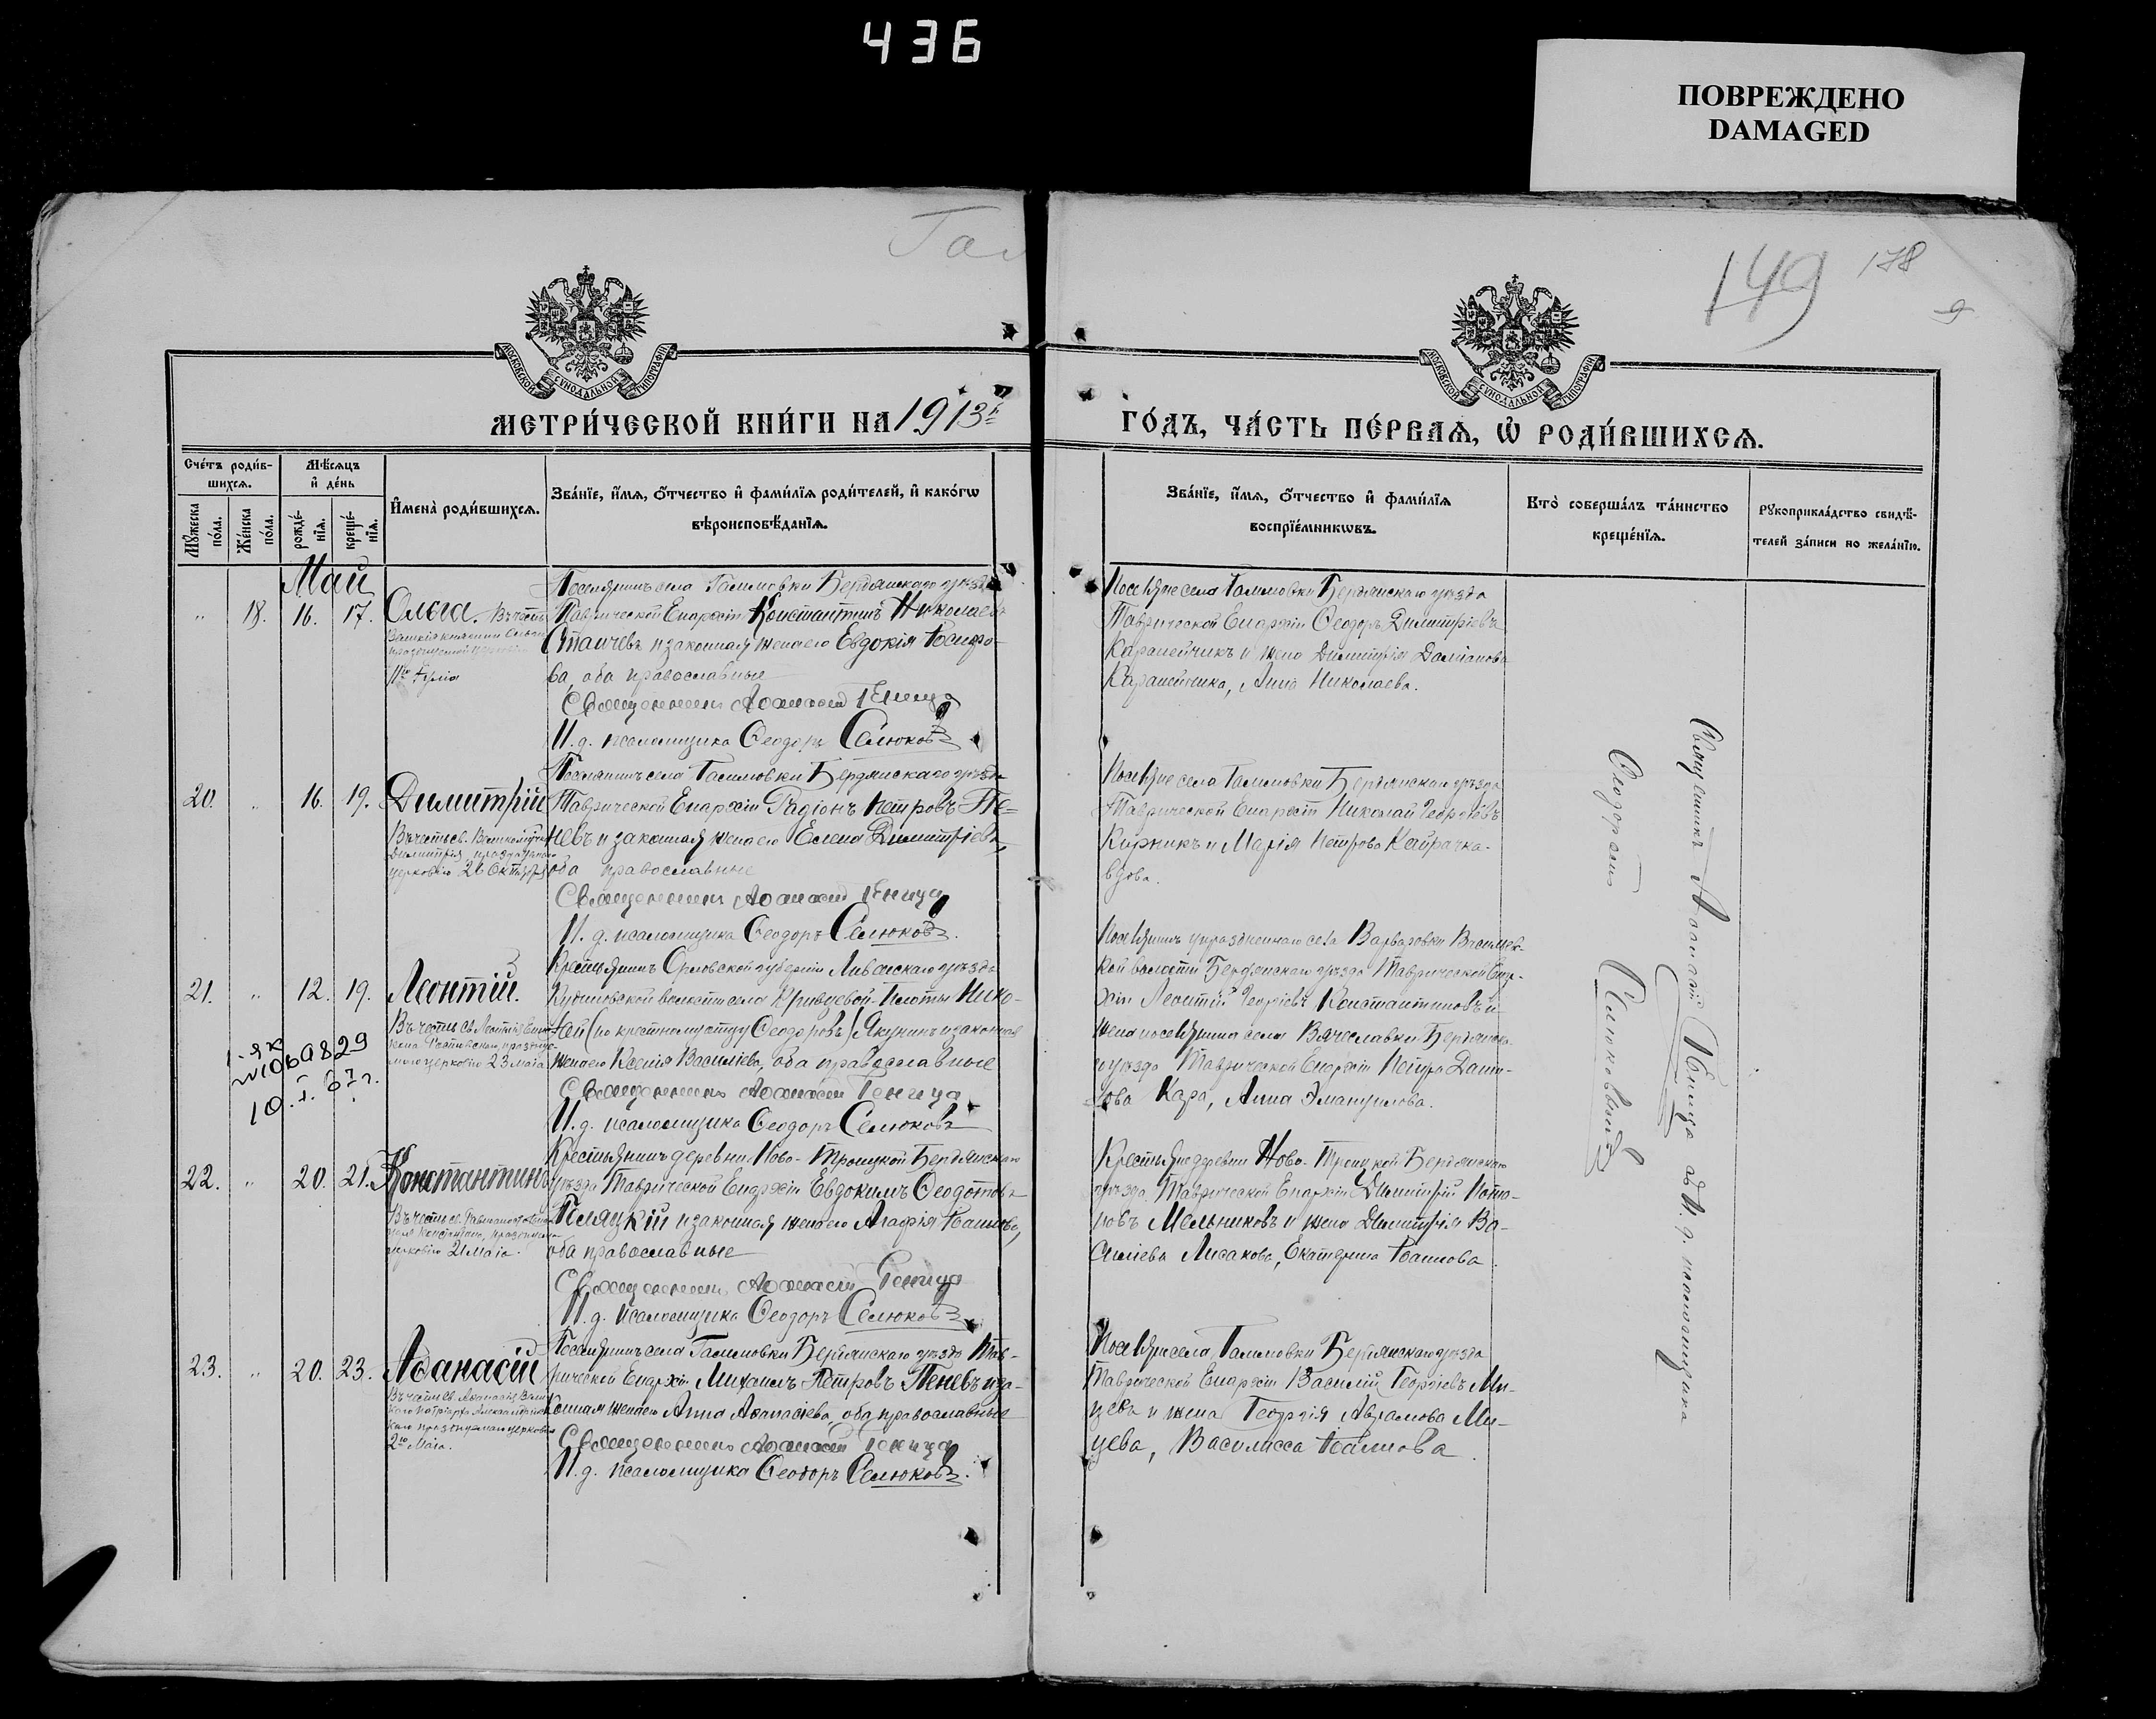 436
ПОВРЕЖДЕНО
DAMAGED
149
178
МОСКОВСКОЙ СѴНОДАЛЬНОЙ ТИПОГРАФІИ
МОСКОВСКОЙ СѴНОДАЛЬНОЙ ТИПОГРАФІИ
МЕТРИ́ЧЕСКОЙ КНИ́ГИ НА 1913й
ГО́ДЪ, ЧА́СТЬ ПЕ́РВАѦ, Ѡ҆ РОДИ́ВШИХСѦ.
Сче́тъ роди́в-
шихсѧ.
Мꙋ́жеска по́ла.
Же́нска по́ла.
Мѣ́сѧцъ
и҆ де́нь
рожде́-
нїѧ.
креще́-
нїѧ.
И҆мена̀ роди́вшихсѧ.
Зва́нїе, и҆́мѧ, ѻ҆́тчество и҆ фами́лїѧ роди́телей, и҆ како́гѡ
вѣроисповѣ́данїѧ.
Зва́нїе, и҆́мѧ, ѻ҆́тчество и҆ фами́лїѧ
воспрїе́мникѡвъ.
Кто̀ соверша́лъ та́инство
креще́нїѧ.
Рꙋкоприкла́дство свидѣ́-
телей за́писи по жела́нїю.
Май
" 18. 16. 17. Ольга. Въ честь
11го Іюля
Поселянинъ села Галимовки Бердянскаго уѣзда
Таврической Епархіи Константинъ Николаевъ
Станчевъ и законная жена его Евдокія Іосифо-
ва, оба православные
Священникъ Аѳанасій Геница
И. д. псаломщика Ѳеодоръ Селюковъ
Поселяне села Галимовки Бердянскаго уѣзда
Таврической Епархіи Ѳеодоръ Димитріевъ
Карапейчикъ и жена Димитрія Даміанова
Карапейчика, Анна Николаева.
20. " 16. 19. Димитрій
Въ честь св. Великомуч.
Димитрія, празднуемаго
церковію 26 Октября
Поселянинъ села Галимовки Бердянскаго уѣзда
Таврической Епархіи Радіонъ Петровъ Пе-
невъ и законная жена его Елена Димитріева,
оба православные
Священникъ Аѳанасій Геница
И. д. псаломщика Ѳеодоръ Селюковъ.
Поселяне села Галимовки Бердянскаго уѣзда
Таврической Епархіи Николай Георгіевъ
Курникъ и Марія Петрова Кайрачка-
вдова.
21. " 12. 19. Леонтій.
Въ честь св. Леонтія Епис-
копа Ростовскаго, празднуе-
маго церковію 23 Маія
1-ЯК
№069829
10.I.67г.
Крестьянинъ Орловской губерніи Ливенскаго уѣзда
Кудиновской волости села Кривцовой-Плоты Нико-
лай (по крестному отцу Ѳеодоровъ) Якунинъ и законная
жена его Ксенія Василіева, оба православные
Священникъ Аѳанасій Геница
И. д. псаломщика Ѳеодоръ Селюковъ
Поселянинъ упраздненнаго села Варваровки Василев-
кой волости Бердянскаго уѣзда Таврической Епар-
хіи Леонтій Георгіевъ Константиновъ и
жена поселянина села Вячеславки Бердянска-
го уѣзда Таврической Епархіи Петра Дани-
лова Кара, Анна Эмануилова.
22. " 20. 21. Константинъ
Въ честь св. Равноапостольна-
го царя Константина, празднуемаго
церковію 21 Маія.
Крестьянинъ деревни Ново-Троицкой Бердянскаго
уѣзда Таврической Епархіи Евдокимъ Ѳеодотовъ
Пляцкій и законная жена его Агафія Іоаннова,
оба православные
Священникъ Аѳанасій Геница
И. д. псаломщика Ѳеодоръ Селюковъ
Крестьяне деревни Ново-Троицкой Бердянскаго
уѣзда Таврической Епархіи Димитрій Пота-
повъ Мельниковъ и жена Димитрія Ва-
силіева Лисакова, Екатерина Іоаннова.
23. " 20. 23. Аѳанасій
Въ честь св. Аѳанасія Вели-
каго патріарха Александрійс-
каго празднуемаго церковію
2го Маія.
Поселянинъ села Галимовки Бердянскаго уѣзда Тав-
рической Епархіи Михаилъ Петровъ Пеневъ и за-
конная жена его Анна Аѳанасіева, оба православные
Священникъ Аѳанасій Геница
И. д. псаломщика Ѳеодоръ Селюковъ.
Поселяне села Галимовки Бердянскаго уѣзда
Таврической Епархіи Василій Георгіевъ Ми-
цевъ и жена Георгія Аврамова Ми-
цева, Василисса Іоаннова.
Священникъ Аѳанасій Геница съ И. д. псаломщика
Ѳеодоромъ Селюковымъ